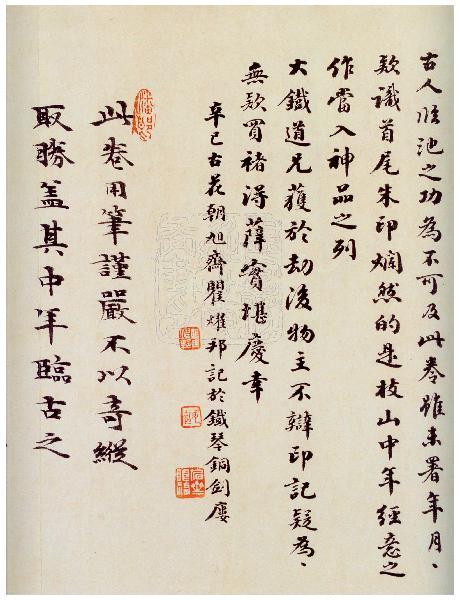 古人臨池之功為不可及此卷雖未署年月、
欵識首尾朱印爛然的是枝山中年經意之
作當入神品之列
大鐵道兄獲於劫後物主不辯印記疑為、
無欵買褚得薛實堪慶幸
辛巳古花朝旭齋瞿燿邦記於鐵琴銅劍廔
此卷用筆謹嚴不以奇縱
取勝盖其中年臨古之